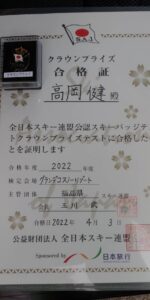 S.A.J
クラウンプライズ
合格証
高岡 健 殿
全日本スキー連盟公認スキーバッジテス
トクラウンプライズテストに合格した
ことを証明します
合格年度 2022年度
検定会場 グランデコスノーリゾート
主管団体 福島県 スキー連盟
会長 玉川 武
合格日 2022年 4月 3日
公益財団法人 全日本スキー連盟
Sponsored by 日本旅行